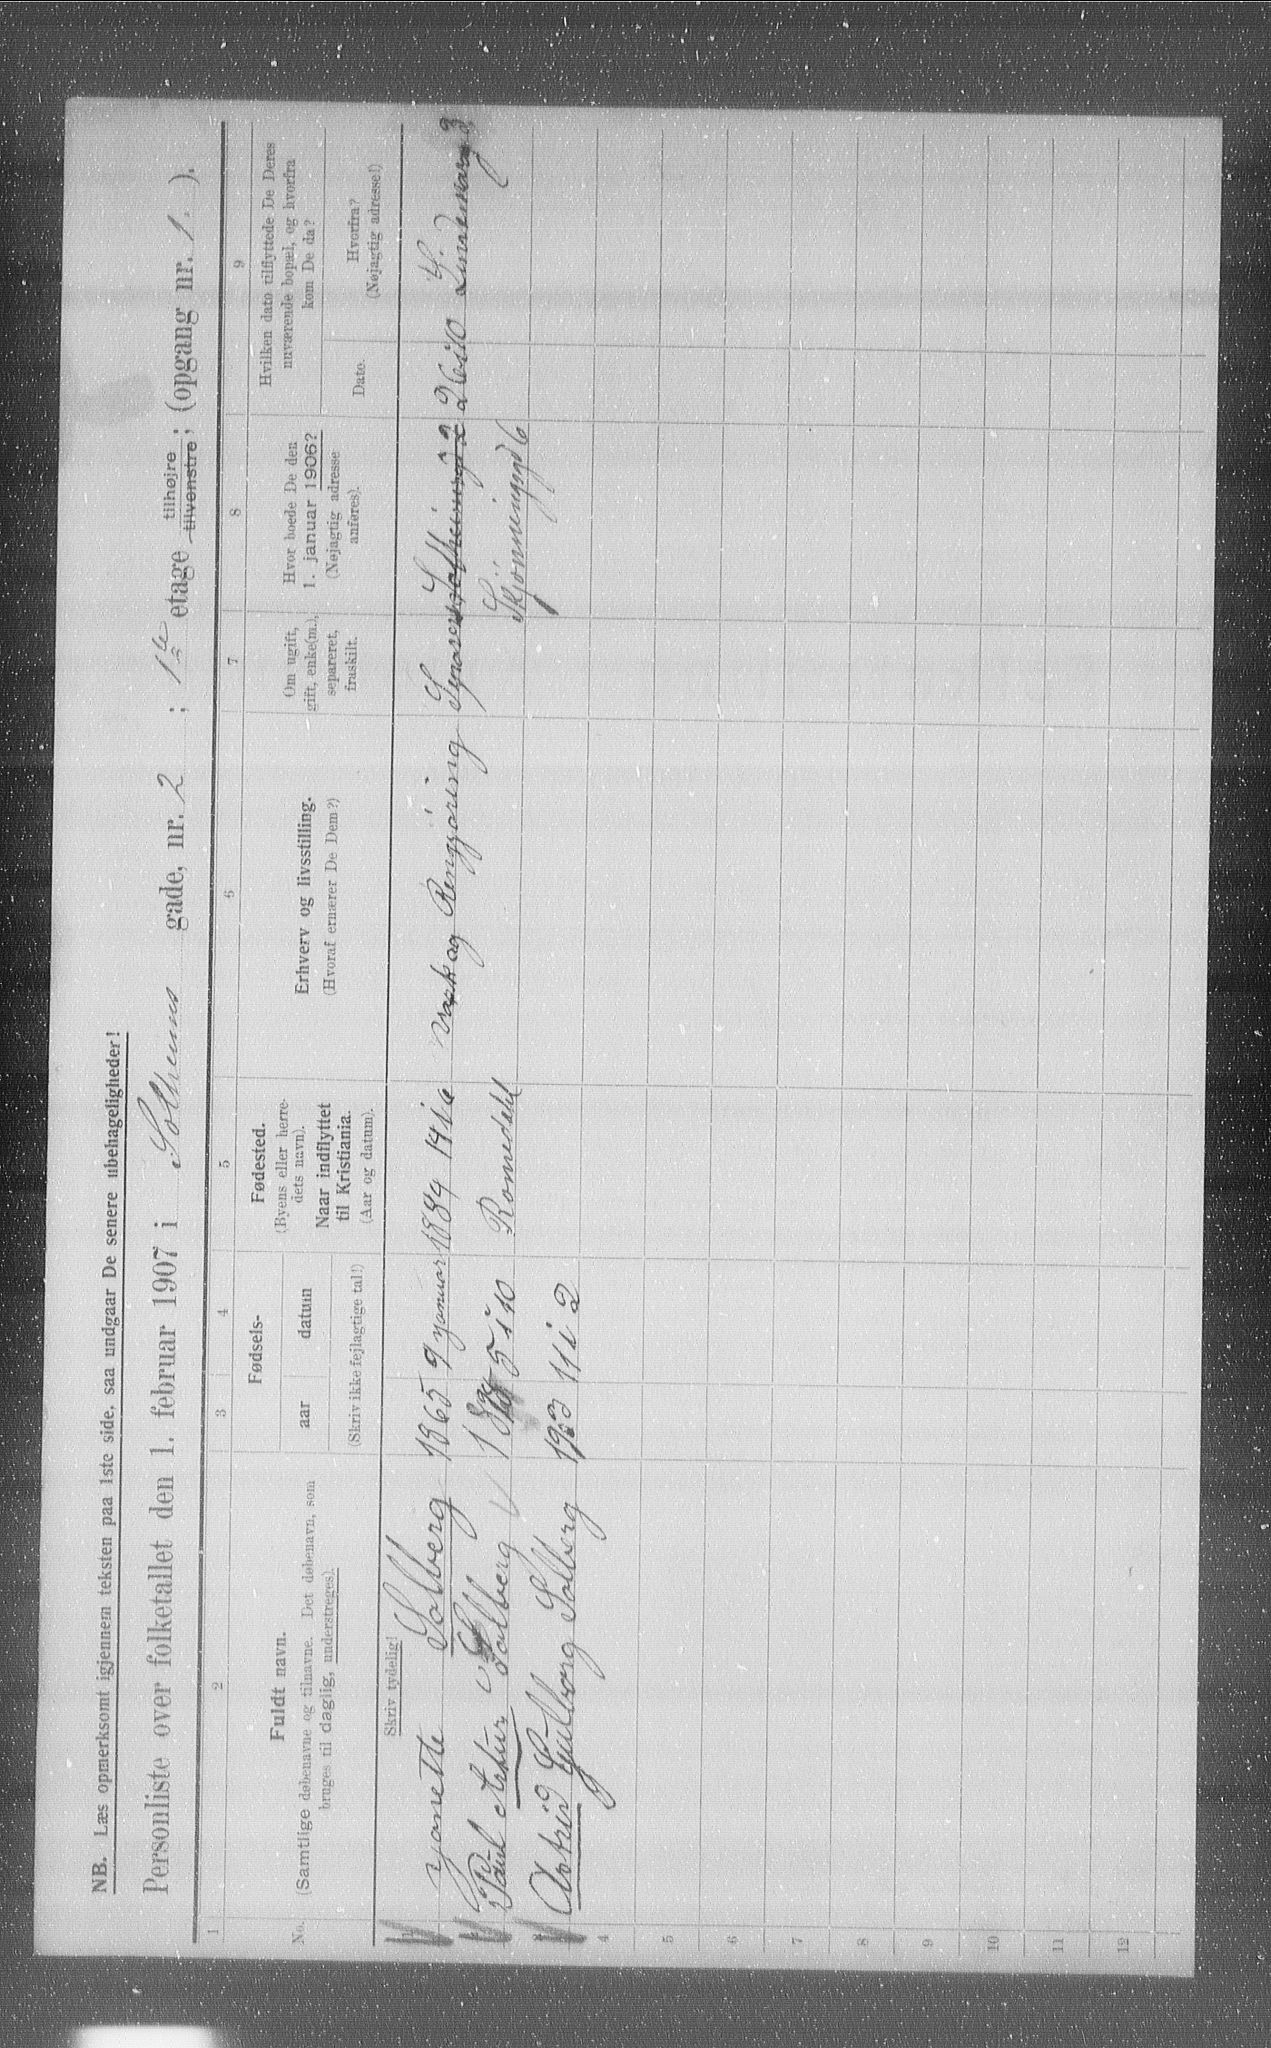 NB. Læs opmerksomt igjennem teksten paa 1ste side, saa undgaar De senere ubehageligheder!
Personliste over folketallet den 1. februar 1907 i Solheims gade, nr. 2 ; 1ste etage tilhøjre tilvenstre; (opgang nr. 1. ).
1 2 3 4 5 6 7 8 9
No.
Fuldt navn.
(Samtlige døbenavne og tilnavne. Det døbenavn, som
bruges til daglig, understreges).
Skriv tydelig!
Fødsels-
aar datum
(Skriv ikke fejlagtige tal!)
Fødested.
(Byens eller herre-
dets navn).
Naar indflyttet
til Kristiania.
(Aar og datum).
Erhverv og livsstilling.
(Hvoraf ernærer De Dem?)
Om ugift,
gift, enke(m.),
separeret,
fraskilt.
Hvor boede De den
1. januar 1906?
(Nøjagtig adresse
anføres).
Hvilken dato tilflyttede De Deres
nuværende bopæl, og hvorfra
kom De da?
Dato.
Hvorfra?
(Nøjagtig adresse!)
1 Solberg 1865 9 januar 1884 14 i og Rengjøring 26 i 10
2 Paul Artur Solberg 5 i 10 Romedahl
3 Astrid Gulborg Solberg 1903 11 i 2
4
5
6
7
8
9
10
11
12